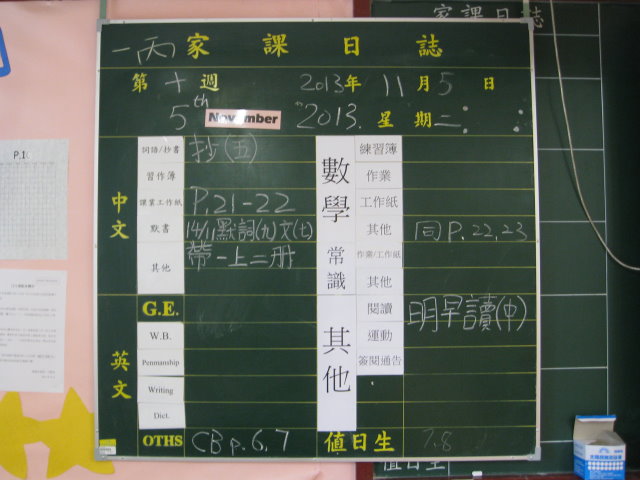 一丙 家課日誌
第 十 週 2013年 11月5日
5th November 2013. 星期二
中文
詞語/抄書 抄(五)
習作簿
課業工作紙 P.21-22
默書 14/11默詞(九)文(七)
其他 帶一上二册
英文
G.E.
W.B.
Penmanship
Writing
Dict.
OTHS CB p.6,7
數學
練習簿
作業
工作紙
其他 同P.22,23
常識
作業/工作紙
其他
其他
閱讀 明早讀(中)
運動
簽閱通告
值日生 7.8
家課日誌
值日生
P.1